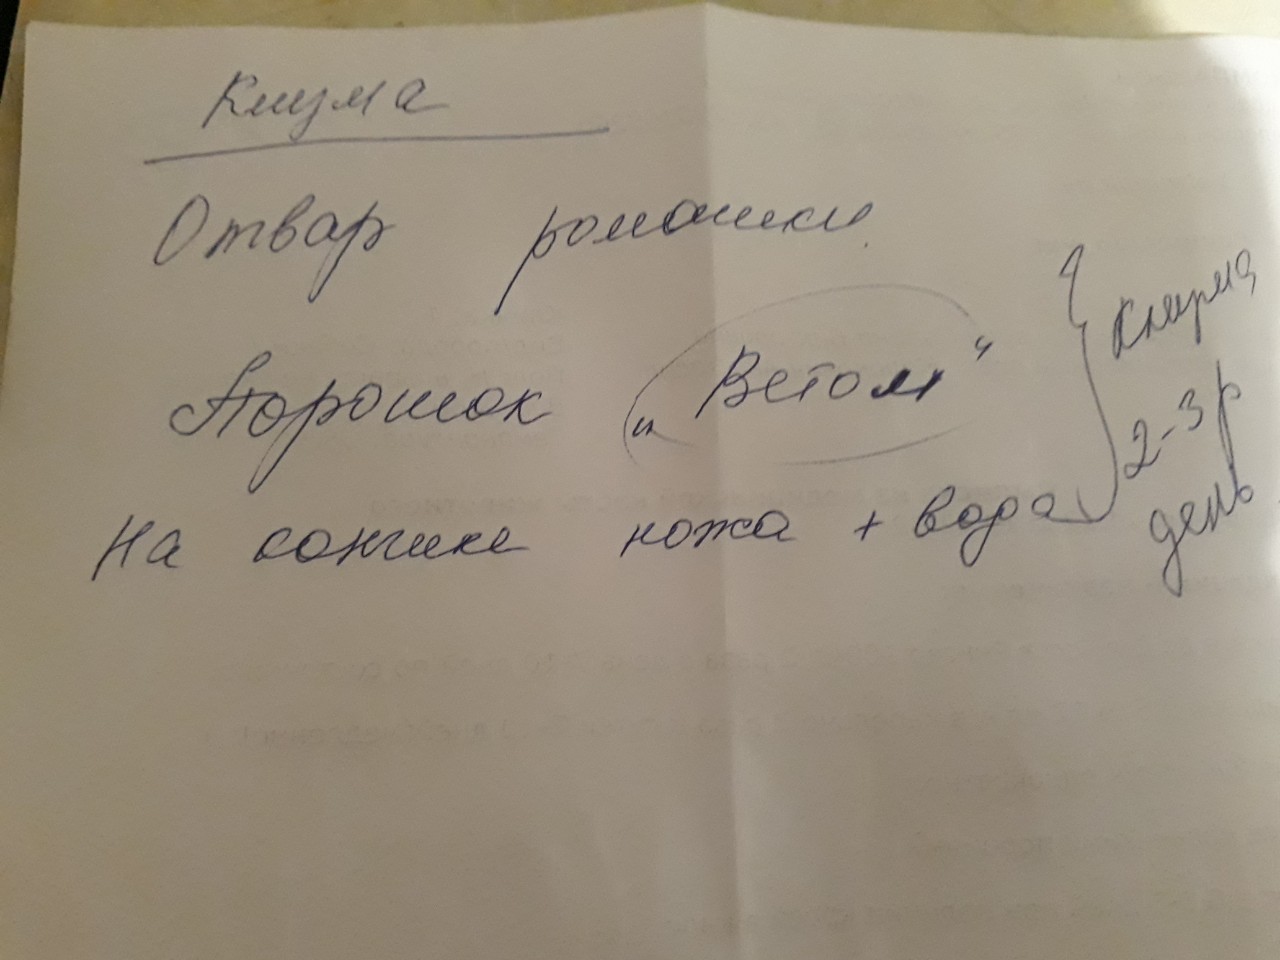 Клизма
Отвар ромашки
Порошок „Ветом"
На кончике ножа + вода
Клизма
2-3 р
день